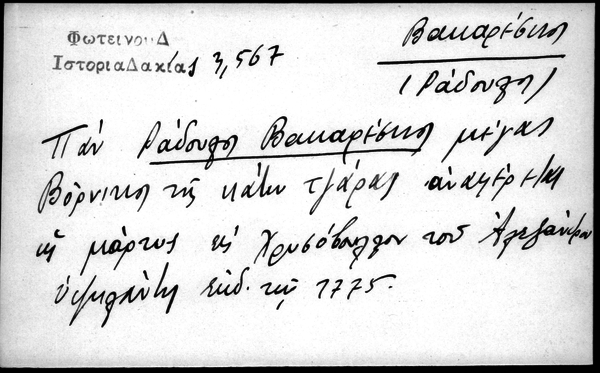 Φωτεινού Δ
Ιστορια Δακίας 3,567
Βακαρέσκος
(Ράδουλος)
Πάν Ράδουλος Βακαρέσκος μέγας
Βόρνικος της κάτω τζάρας αναφέρεται
ως μάρτυς εις Χρυσόβουλλον του Αλεξάνδρου
Υψηλάντη εκδ. τω 1775.